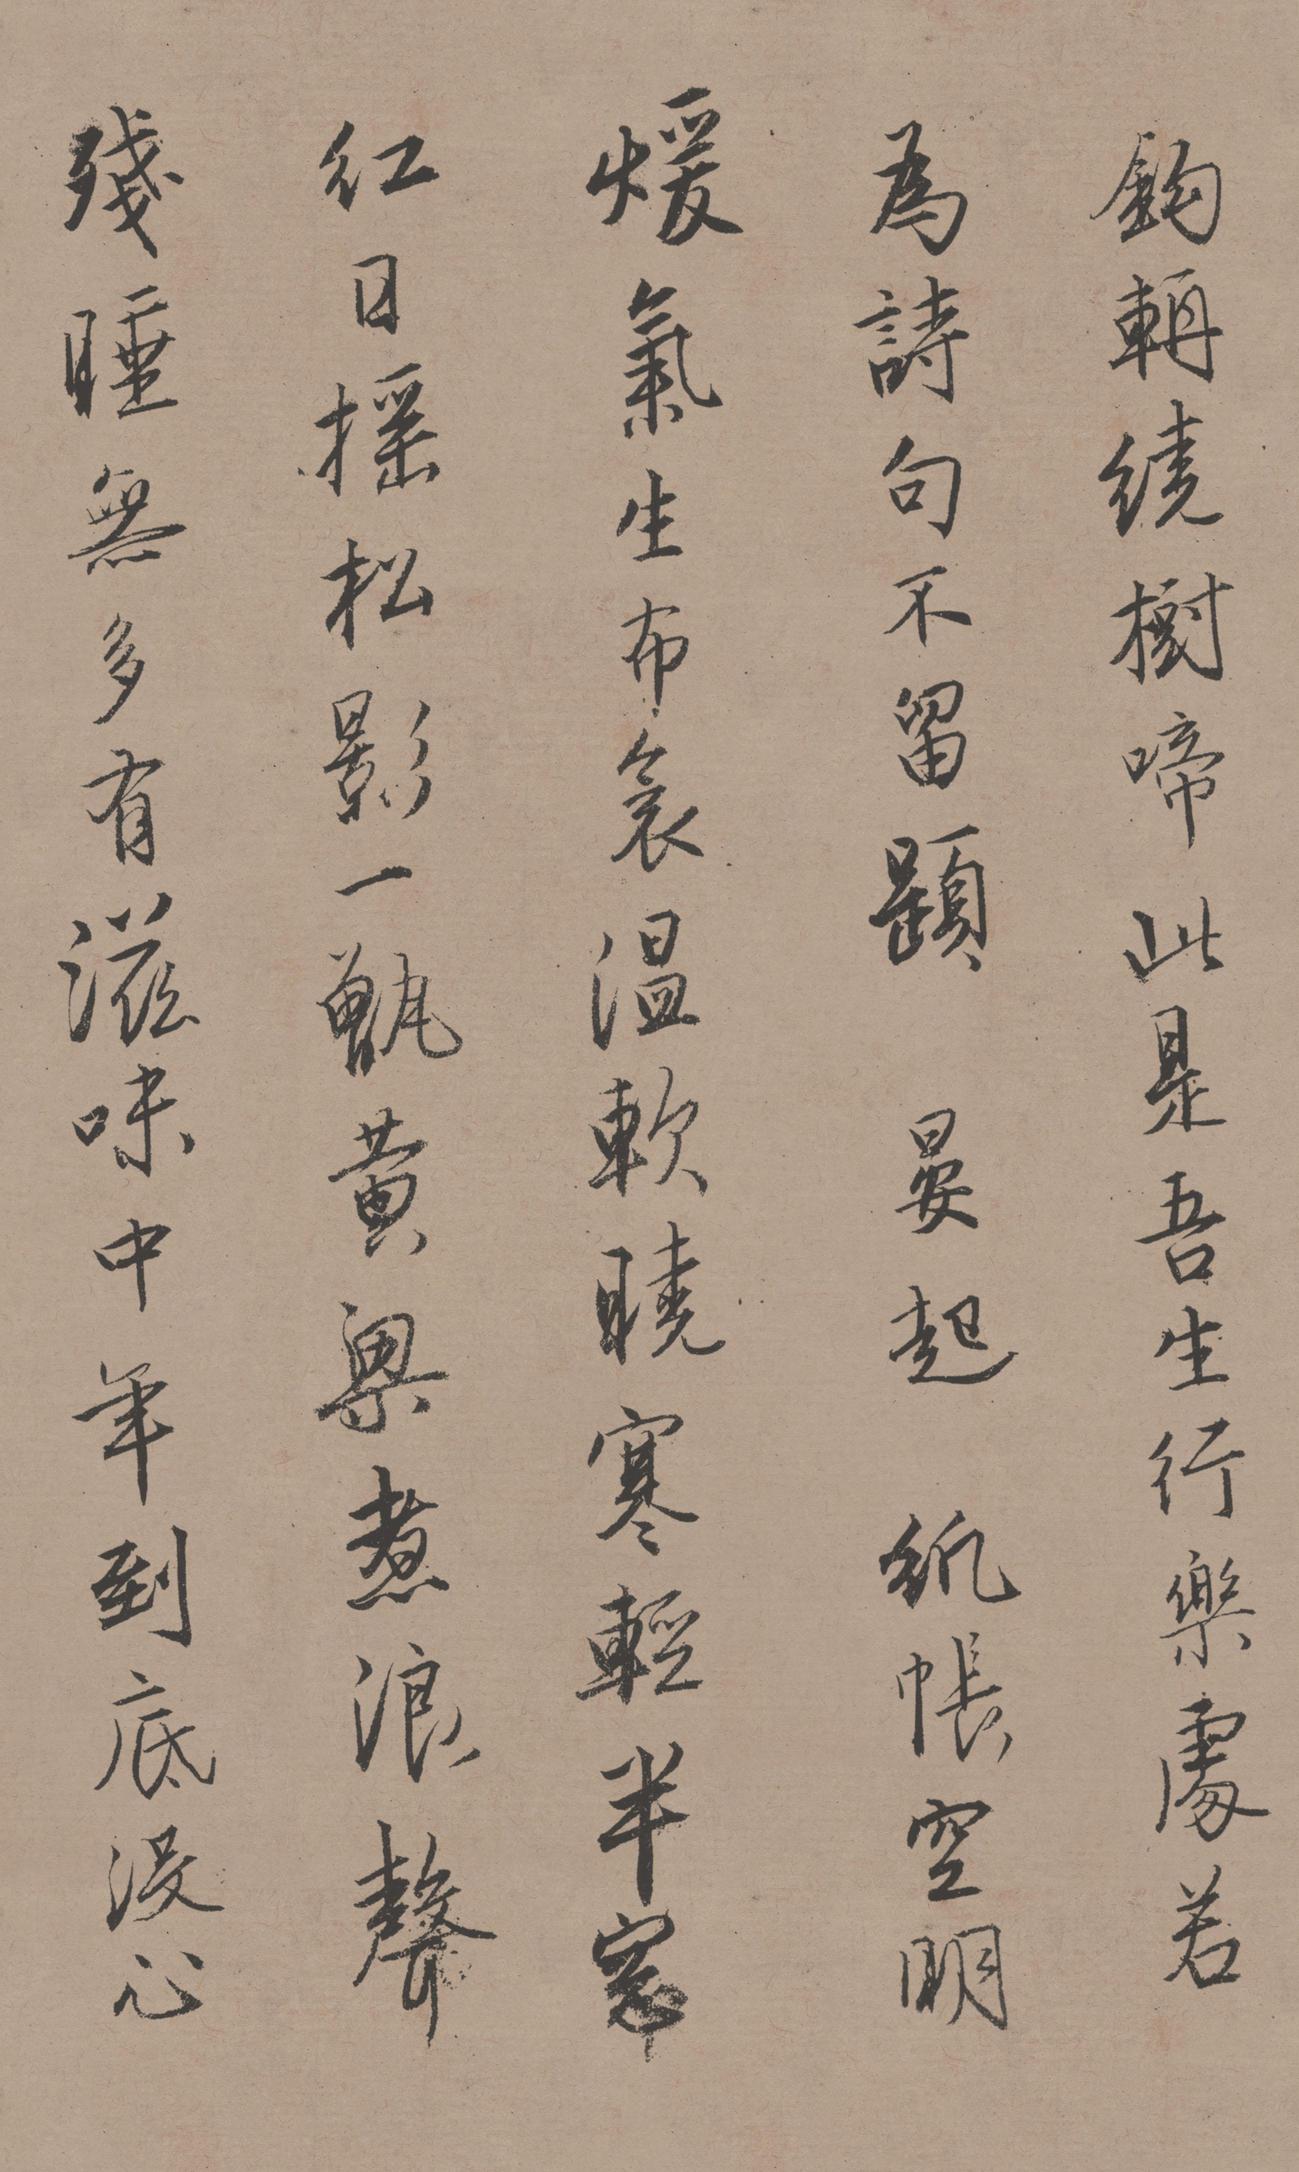 鈎輈繞樹啼此是吾生行樂處若
為詩句不留題 晏起 紙帳空明
煖氣生布衾溫軟曉寒輕半窓
紅日摇松影一甑黄粱煮浪聲
殘睡無多有滋味中年到底没心